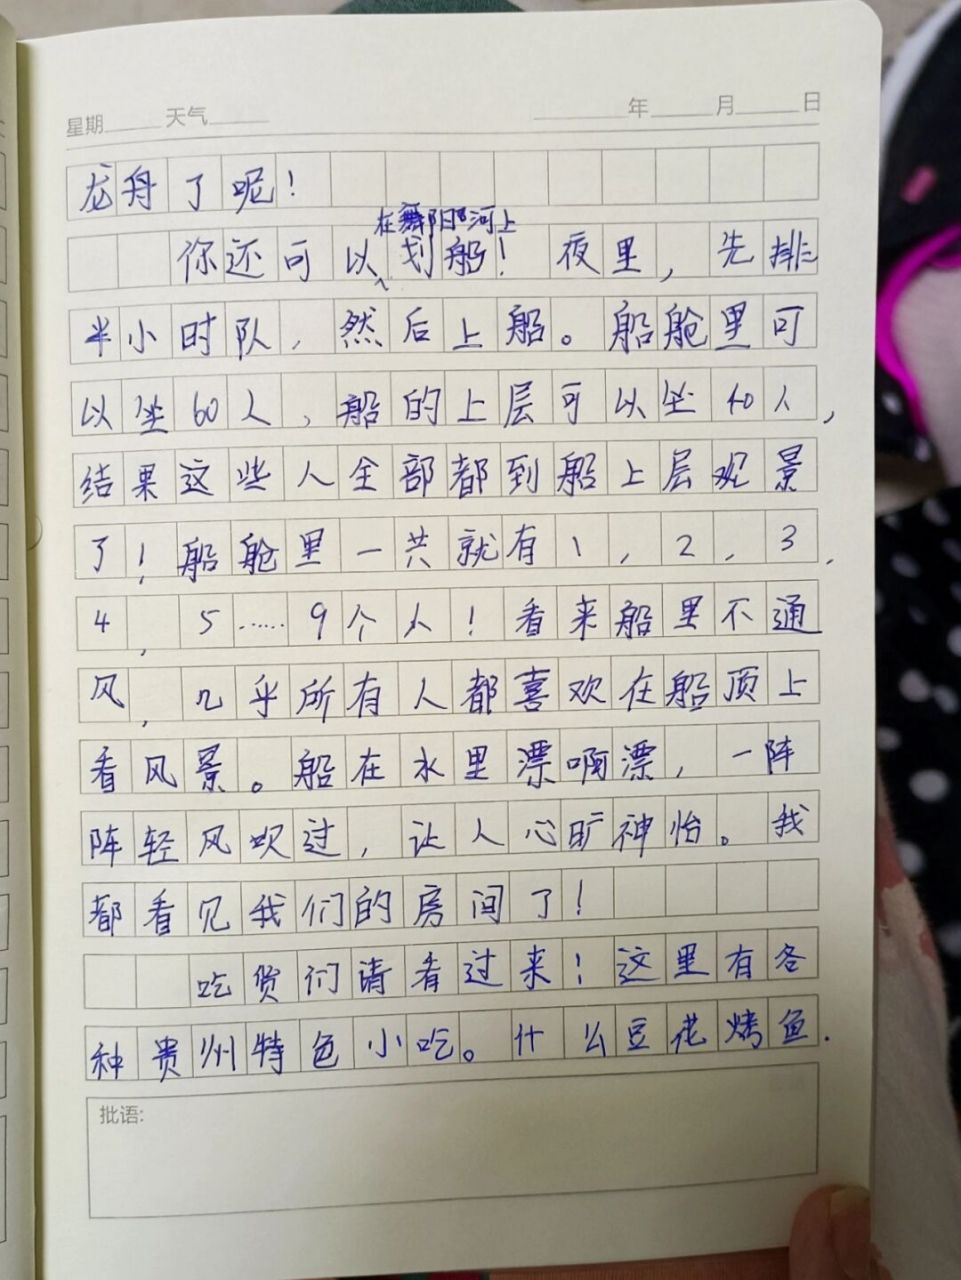 星期 天气 年 月 日
龙舟了呢！
在舞阳河上
你还可以划船！夜里，先排
半小时队，然后上船。船舱里可
以坐60人，船的上层可以坐40人，
结果这些人全部都到船上层观景
了！船舱里一共就有1，2，3，
4，5……9个人！看来船里不通
风，几乎所有人都喜欢在船顶上
看风景。船在水里漂啊漂，一阵
阵轻风吹过，让人心旷神怡。我
都看见我们的房间了！
吃货们请看过来！这里有各
种贵州特色小吃。什么豆花烤鱼.
批语: